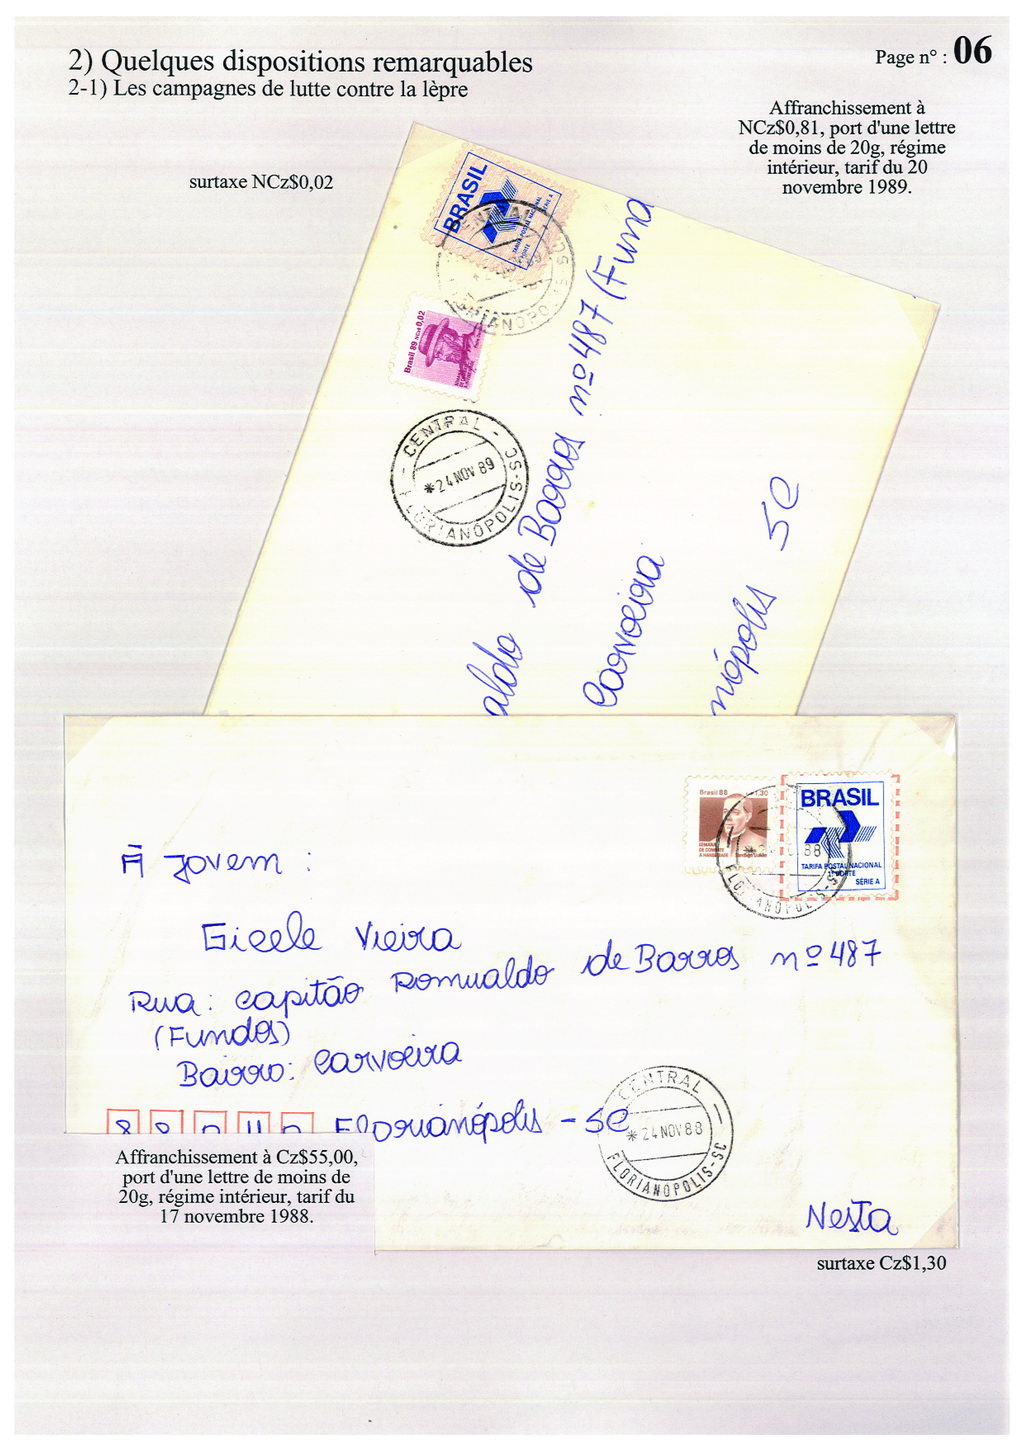 2) Quelques dispositions remarquables
2-1) Les campagnes de lutte contre la lèpre
Page n° : 06
Affranchissement à
NCz$0,81, port d'une lettre
de moins de 20g, régime
intérieur, tarif du 20
novembre 1989.
surtaxe NCz$0,02
BRASIL
TARIFA POSTAL NACIONAL
1º PORTE
SÉRIE A
CENTRAL
FLORIANÓPOLIS-SC
Brasil 89 NCz$ 0,02
CENTRAL -
*24 NOV 89
FLORIANÓPOLIS-SC
aldo de Barros nº 487 (Fund
Carvoeira
nópolis SC
Brasil 88 1,30
SEMANA
DE COMBATE
À HANSENÍASE
Santiago Uchôa
BRASIL
TARIFA POSTAL NACIONAL
1º PORTE
SÉRIE A
88
FLORIANOPOLIS-S
À Jovem :
Gisele Vieira
Rua: Capitão Romualdo de Barros nº 487
(Fundos)
Bairro: Carvoeira
Florianópolis - SC
CENTRAL -
*24 NOV 88
FLORIANÓPOLIS-SC
Nesta
Affranchissement à Cz$55,00,
port d'une lettre de moins de
20g, régime intérieur, tarif du
17 novembre 1988.
surtaxe Cz$1,30